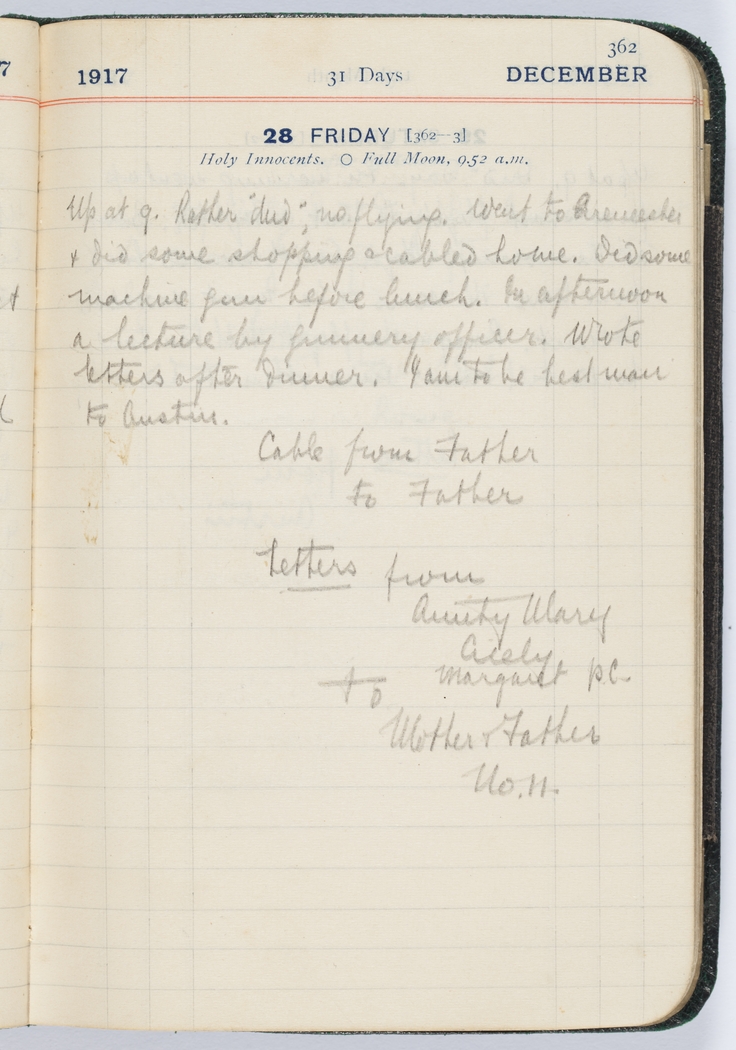 362
7
1917 31 Days DECEMBER
28 FRIDAY [362—3]
Holy Innocents. ○ Full Moon, 9.52 a.m.
Up at 9. Rather "dud", no flying. Went to Cirencester
& did some shopping & cabled home. Did some
machine gun before lunch. In afternoon
a lecture by gunnery officer. Wrote
letters after dinner. I am to be best man
to Austin.
Cable from Father
to Father
Letters from
Aunty Mary
Cicely
Margaret p.c.
to
Mother & Father
No. 11.